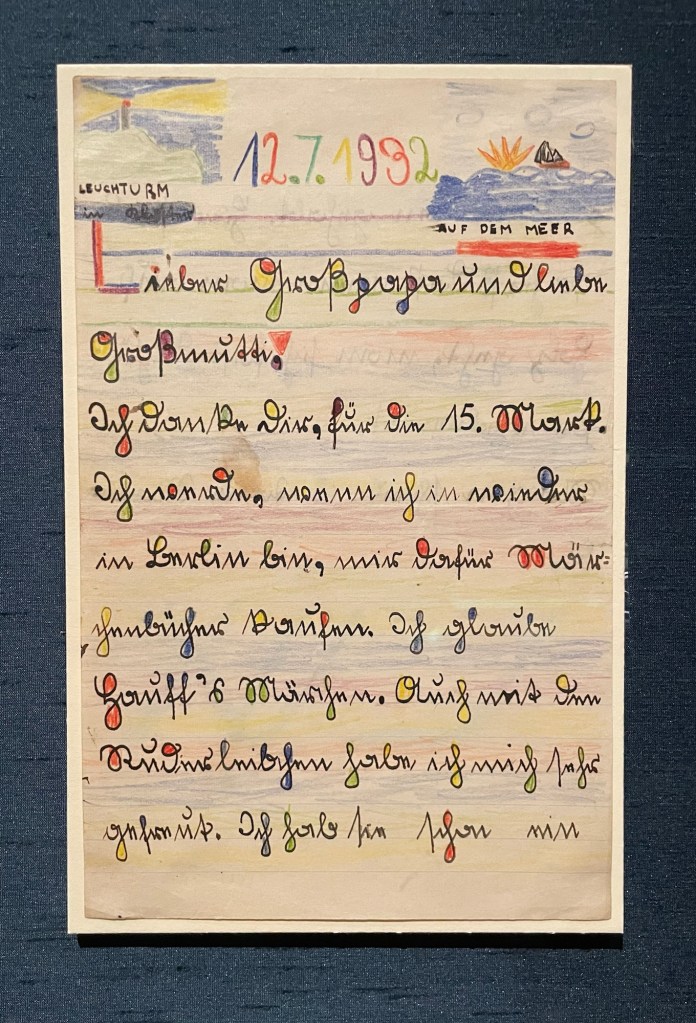 12.7.1932
LEUCHTURM
in
AUF DEM MEER
Lieber Großpapa und liebe
Großmutti,
Ich danke Dir, für die 15. Mark.
Ich werde, wenn ich in wieder
in Berlin bin, mir dafür Mär=
chenbücher kaufen. Ich glaube
Hauff's Märchen. Auch mit den
Ruderleibchen habe ich mich sehr
gefreut. Ich hab sie schon ein